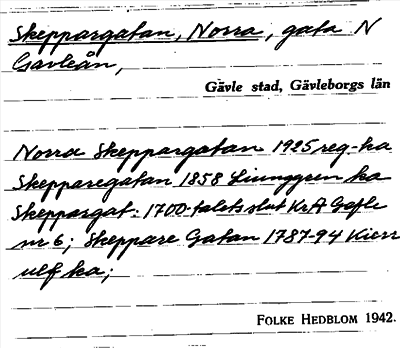 Skeppargatan, Norra, gata N
Gavleån,
Gävle stad, Gävleborgs län
Norra Skeppargatan 1925 reg-ka
Skepparegatan 1858 Ljunggren ka
Skeppargat: 1700-talets slut KrA Gefle
nr 6; Skeppare Gatan 1787-94 Kierr
ulf ka;
FOLKE HEDBLOM 1942.